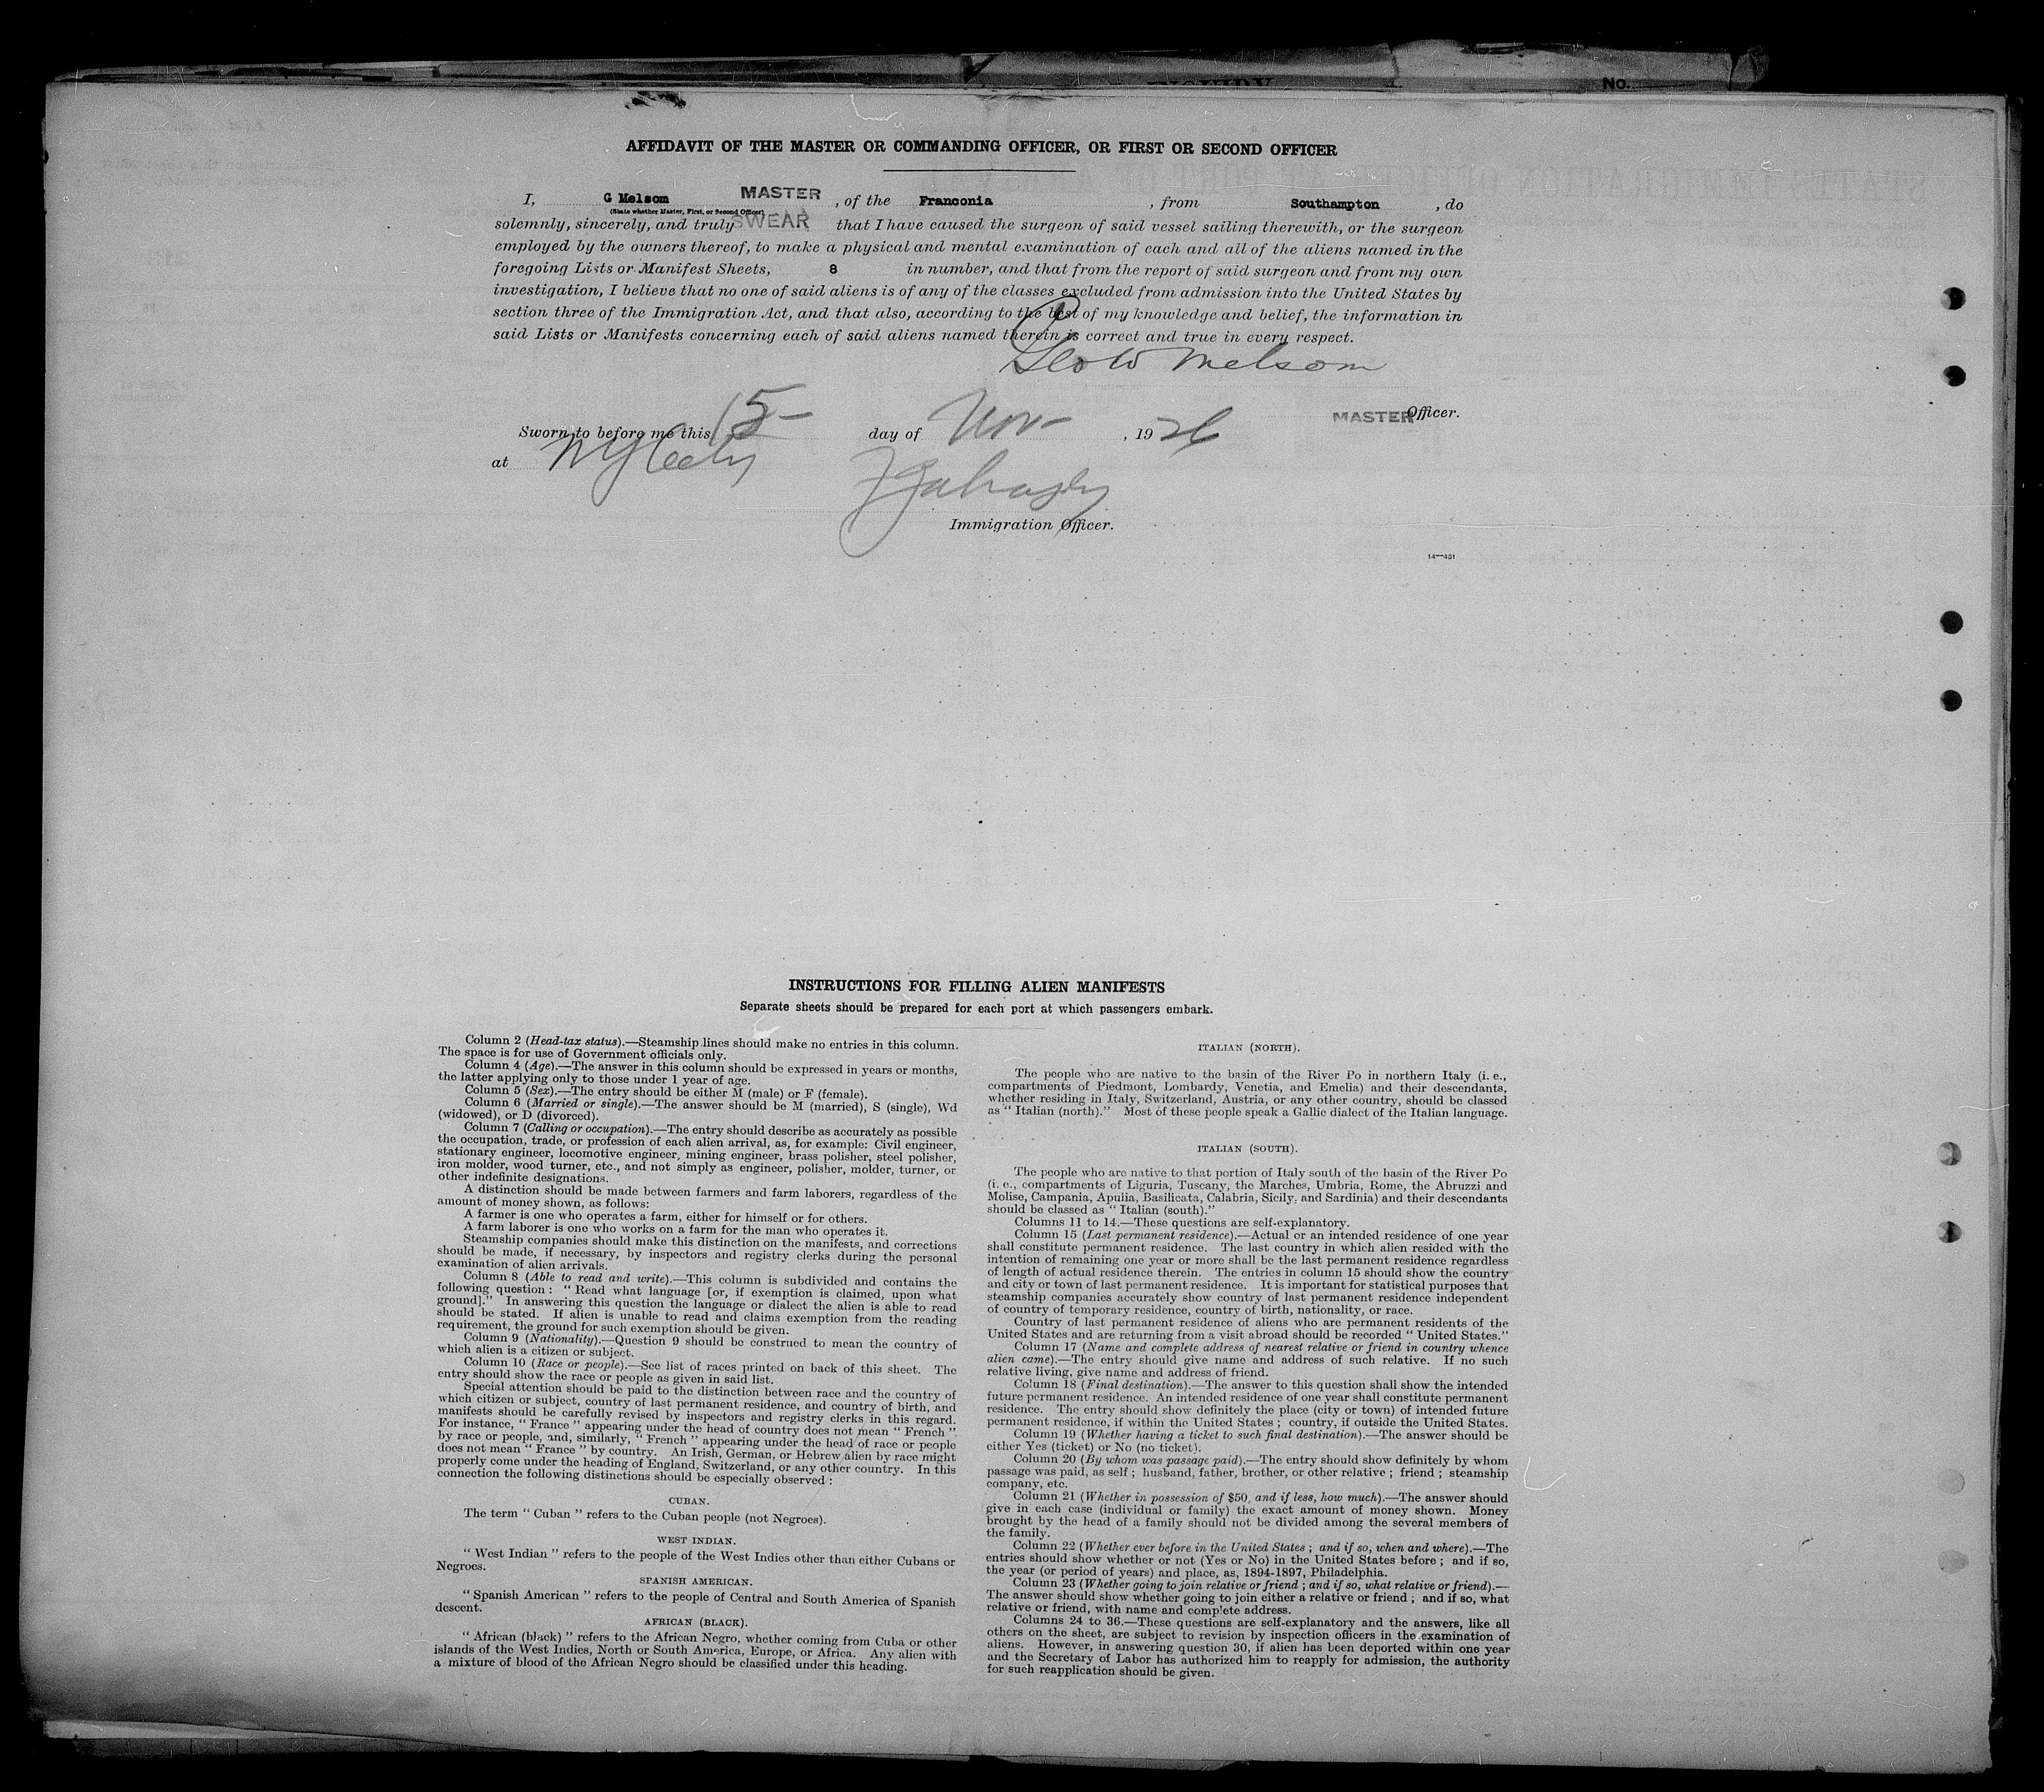 No.
AFFIDAVIT OF THE MASTER OR COMMANDING OFFICER, OR FIRST OR SECOND OFFICER
I, G Melsom MASTER , of the Franconia , from Southampton , do
(State whether Master, First, or Second Officer)
solemnly, sincerely, and truly SWEAR that I have caused the surgeon of said vessel sailing therewith, or the surgeon
employed by the owners thereof, to make a physical and mental examination of each and all of the aliens named in the
foregoing Lists or Manifest Sheets, 8 in number, and that from the report of said surgeon and from my own
investigation, I believe that no one of said aliens is of any of the classes excluded from admission into the United States by
section three of the Immigration Act, and that also, according to the best of my knowledge and belief, the information in
said Lists or Manifests concerning each of said aliens named therein is correct and true in every respect.
Geo W Melsom
MASTER Officer.
Sworn to before me this 15 day of Nov , 1926
at N Y City
Immigration Officer.
14—431
INSTRUCTIONS FOR FILLING ALIEN MANIFESTS
Separate sheets should be prepared for each port at which passengers embark.
Column 2 (Head-tax status).—Steamship lines should make no entries in this column.
The space is for use of Government officials only.
Column 4 (Age).—The answer in this column should be expressed in years or months,
the latter applying only to those under 1 year of age.
Column 5 (Sex).—The entry should be either M (male) or F (female).
Column 6 (Married or single).—The answer should be M (married), S (single), Wd
(widowed), or D (divorced).
Column 7 (Calling or occupation).—The entry should describe as accurately as possible
the occupation, trade, or profession of each alien arrival, as, for example: Civil engineer,
stationary engineer, locomotive engineer, mining engineer, brass polisher, steel polisher,
iron molder, wood turner, etc., and not simply as engineer, polisher, molder, turner, or
other indefinite designations.
A distinction should be made between farmers and farm laborers, regardless of the
amount of money shown, as follows:
A farmer is one who operates a farm, either for himself or for others.
A farm laborer is one who works on a farm for the man who operates it.
Steamship companies should make this distinction on the manifests, and corrections
should be made, if necessary, by inspectors and registry clerks during the personal
examination of alien arrivals.
Column 8 (Able to read and write).—This column is subdivided and contains the
following question : “ Read what language [or, if exemption is claimed, upon what
ground].” In answering this question the language or dialect the alien is able to read
should be stated. If alien is unable to read and claims exemption from the reading
requirement, the ground for such exemption should be given.
Column 9 (Nationality).—Question 9 should be construed to mean the country of
which alien is a citizen or subject.
Column 10 (Race or people).—See list of races printed on back of this sheet. The
entry should show the race or people as given in said list.
Special attention should be paid to the distinction between race and the country of
which citizen or subject, country of last permanent residence, and country of birth, and
manifests should be carefully revised by inspectors and registry clerks in this regard.
For instance, “ France ” appearing under the head of country does not mean “ French ”
by race or people, and, similarly, “ French ” appearing under the head of race or people
does not mean “ France ” by country. An Irish, German, or Hebrew alien by race might
properly come under the heading of England, Switzerland, or any other country. In this
connection the following distinctions should be especially observed :
CUBAN.
The term “ Cuban ” refers to the Cuban people (not Negroes).
WEST INDIAN.
“ West Indian ” refers to the people of the West Indies other than either Cubans or
Negroes.
SPANISH AMERICAN.
“ Spanish American ” refers to the people of Central and South America of Spanish
descent.
AFRICAN (BLACK).
“ African (black) ” refers to the African Negro, whether coming from Cuba or other
islands of the West Indies, North or South America, Europe, or Africa. Any alien with
a mixture of blood of the African Negro should be classified under this heading.
ITALIAN (NORTH).
The people who are native to the basin of the River Po in northern Italy (i. e.,
compartments of Piedmont, Lombardy, Venetia, and Emelia) and their descendants,
whether residing in Italy, Switzerland, Austria, or any other country, should be classed
as “ Italian (north).” Most of these people speak a Gallic dialect of the Italian language.
ITALIAN (SOUTH).
The people who are native to that portion of Italy south of the basin of the River Po
(i. e., compartments of Liguria, Tuscany, the Marches, Umbria, Rome, the Abruzzi and
Molise, Campania, Apulia, Basilicata, Calabria, Sicily, and Sardinia) and their descendants
should be classed as “ Italian (south).”
Columns 11 to 14.—These questions are self-explanatory.
Column 15 (Last permanent residence).—Actual or an intended residence of one year
shall constitute permanent residence. The last country in which alien resided with the
intention of remaining one year or more shall be the last permanent residence regardless
of length of actual residence therein. The entries in column 15 should show the country
and city or town of last permanent residence. It is important for statistical purposes that
steamship companies accurately show country of last permanent residence independent
of country of temporary residence, country of birth, nationality, or race.
Country of last permanent residence of aliens who are permanent residents of the
United States and are returning from a visit abroad should be recorded “ United States.”
Column 17 (Name and complete address of nearest relative or friend in country whence
alien came).—The entry should give name and address of such relative. If no such
relative living, give name and address of friend.
Column 18 (Final destination).—The answer to this question shall show the intended
future permanent residence. An intended residence of one year shall constitute permanent
residence. The entry should show definitely the place (city or town) of intended future
permanent residence, if within the United States ; country, if outside the United States.
Column 19 (Whether having a ticket to such final destination).—The answer should be
either Yes (ticket) or No (no ticket).
Column 20 (By whom was passage paid).—The entry should show definitely by whom
passage was paid, as self ; husband, father, brother, or other relative ; friend ; steamship
company, etc.
Column 21 (Whether in possession of $50, and if less, how much).—The answer should
give in each case (individual or family) the exact amount of money shown. Money
brought by the head of a family should not be divided among the several members of
the family.
Column 22 (Whether ever before in the United States ; and if so, when and where).—The
entries should show whether or not (Yes or No) in the United States before ; and if so,
the year (or period of years) and place, as, 1894-1897, Philadelphia.
Column 23 (Whether going to join relative or friend ; and if so, what relative or friend).—
The answer should show whether going to join either a relative or friend ; and if so, what
relative or friend, with name and complete address.
Columns 24 to 36.—These questions are self-explanatory and the answers, like all
others on the sheet, are subject to revision by inspection officers in the examination of
aliens. However, in answering question 30, if alien has been deported within one year
and the Secretary of Labor has authorized him to reapply for admission, the authority
for such reapplication should be given.